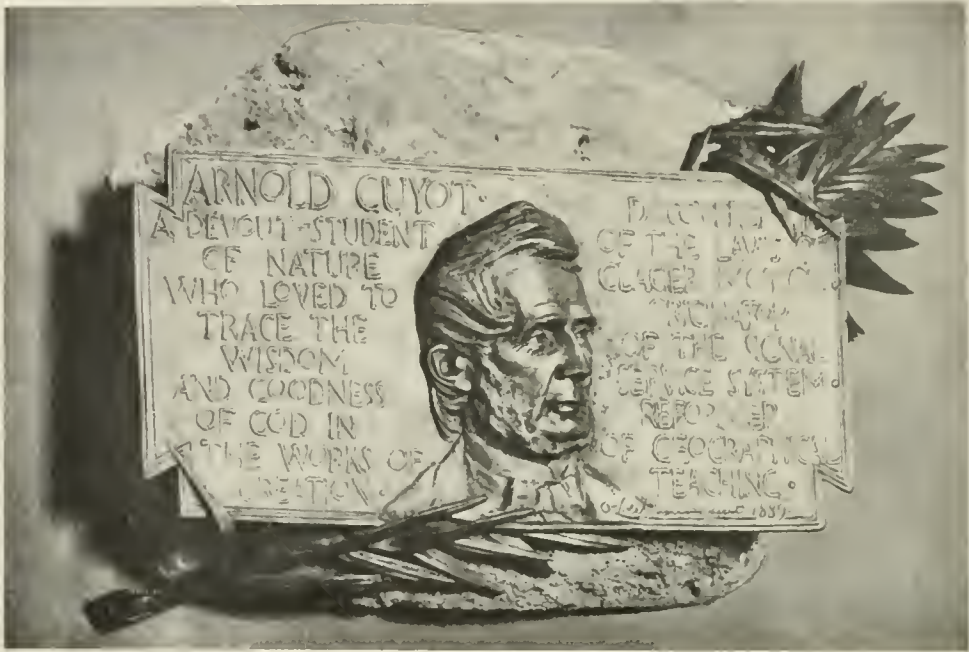 ARNOLD GUYOT·
A DEVOUT STUDENT
OF NATURE
WHO LOVED TO
TRACE THE
WISDOM
AND GOODNESS
OF GOD IN
THE WORKS OF
CREATION·
OF THE LAWS OF
OF THE SIGNAL
SERVICE SYSTEM
REFORMER
OF GEOGRAPHICAL
TEACHING·
1889